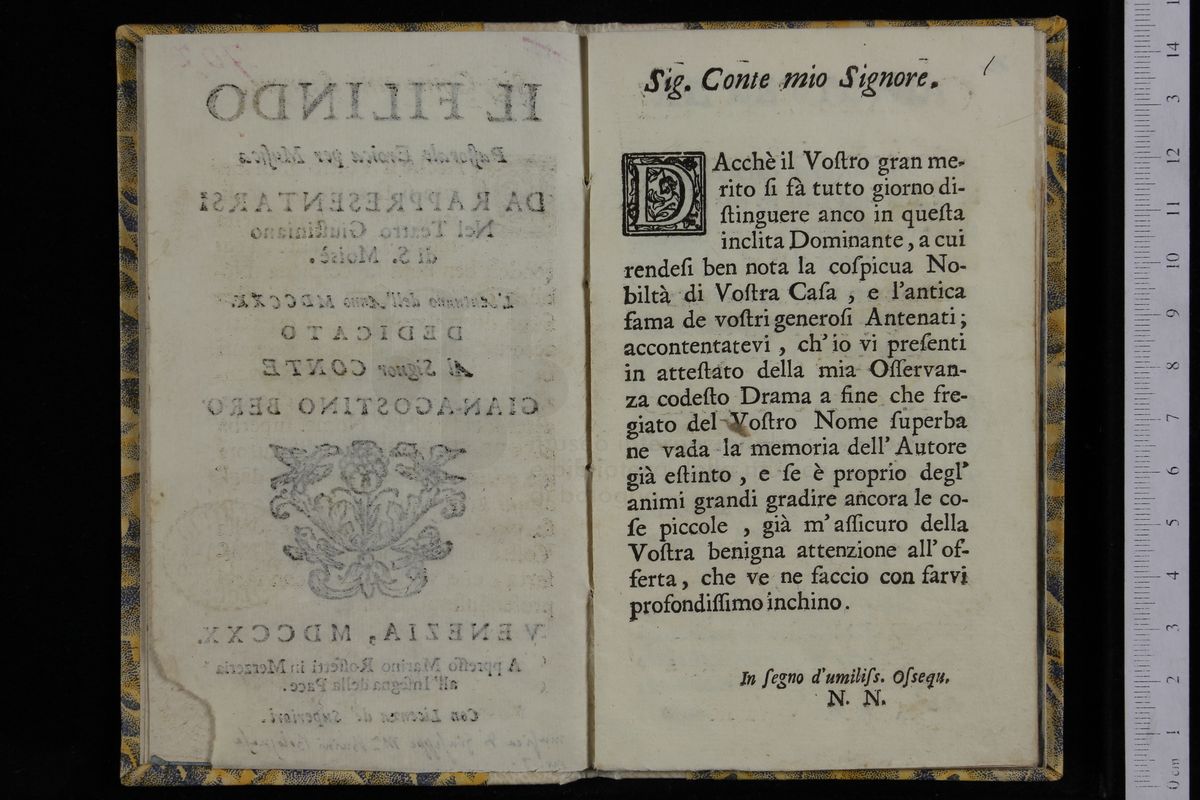 IL FILINDO
Pastorale Eroica per Musica
DA RAPPRESENTARSI
Nel Teatro Giustiniano
di S. Moisè.
L'Autunno dell'Anno MDCCXX.
DEDICATO
Al Signor CONTE
GIAN-AGOSTINO BERO'
VENEZIA, MDCCXX.
Appresso Marino Rossetti in Merzeria
all'Insegna della Pace.
Con Licenza de' Superiori.
Sig. Conte mio Signore.
DAcchè il Voſtro gran me-
rito ſi fà tutto giorno di-
ſtinguere anco in queſta
inclita Dominante, a cui
rendeſi ben nota la coſpicua No-
biltà di Voſtra Caſa, e l'antica
fama de voſtri generoſi Antenati;
accontentatevi, ch'io vi preſenti
in atteſtato della mia Oſſervan-
za codeſto Drama a fine che fre-
giato del Voſtro Nome ſuperba
ne vada la memoria dell'Autore
già eſtinto, e ſe è proprio degl'
animi grandi gradire ancora le co-
ſe piccole, già m'aſſicuro della
Voſtra benigna attenzione all'of-
ferta, che ve ne faccio con farvi
profondiſſimo inchino.
In ſegno d'umiliſs. Oſsequ.
N. N.